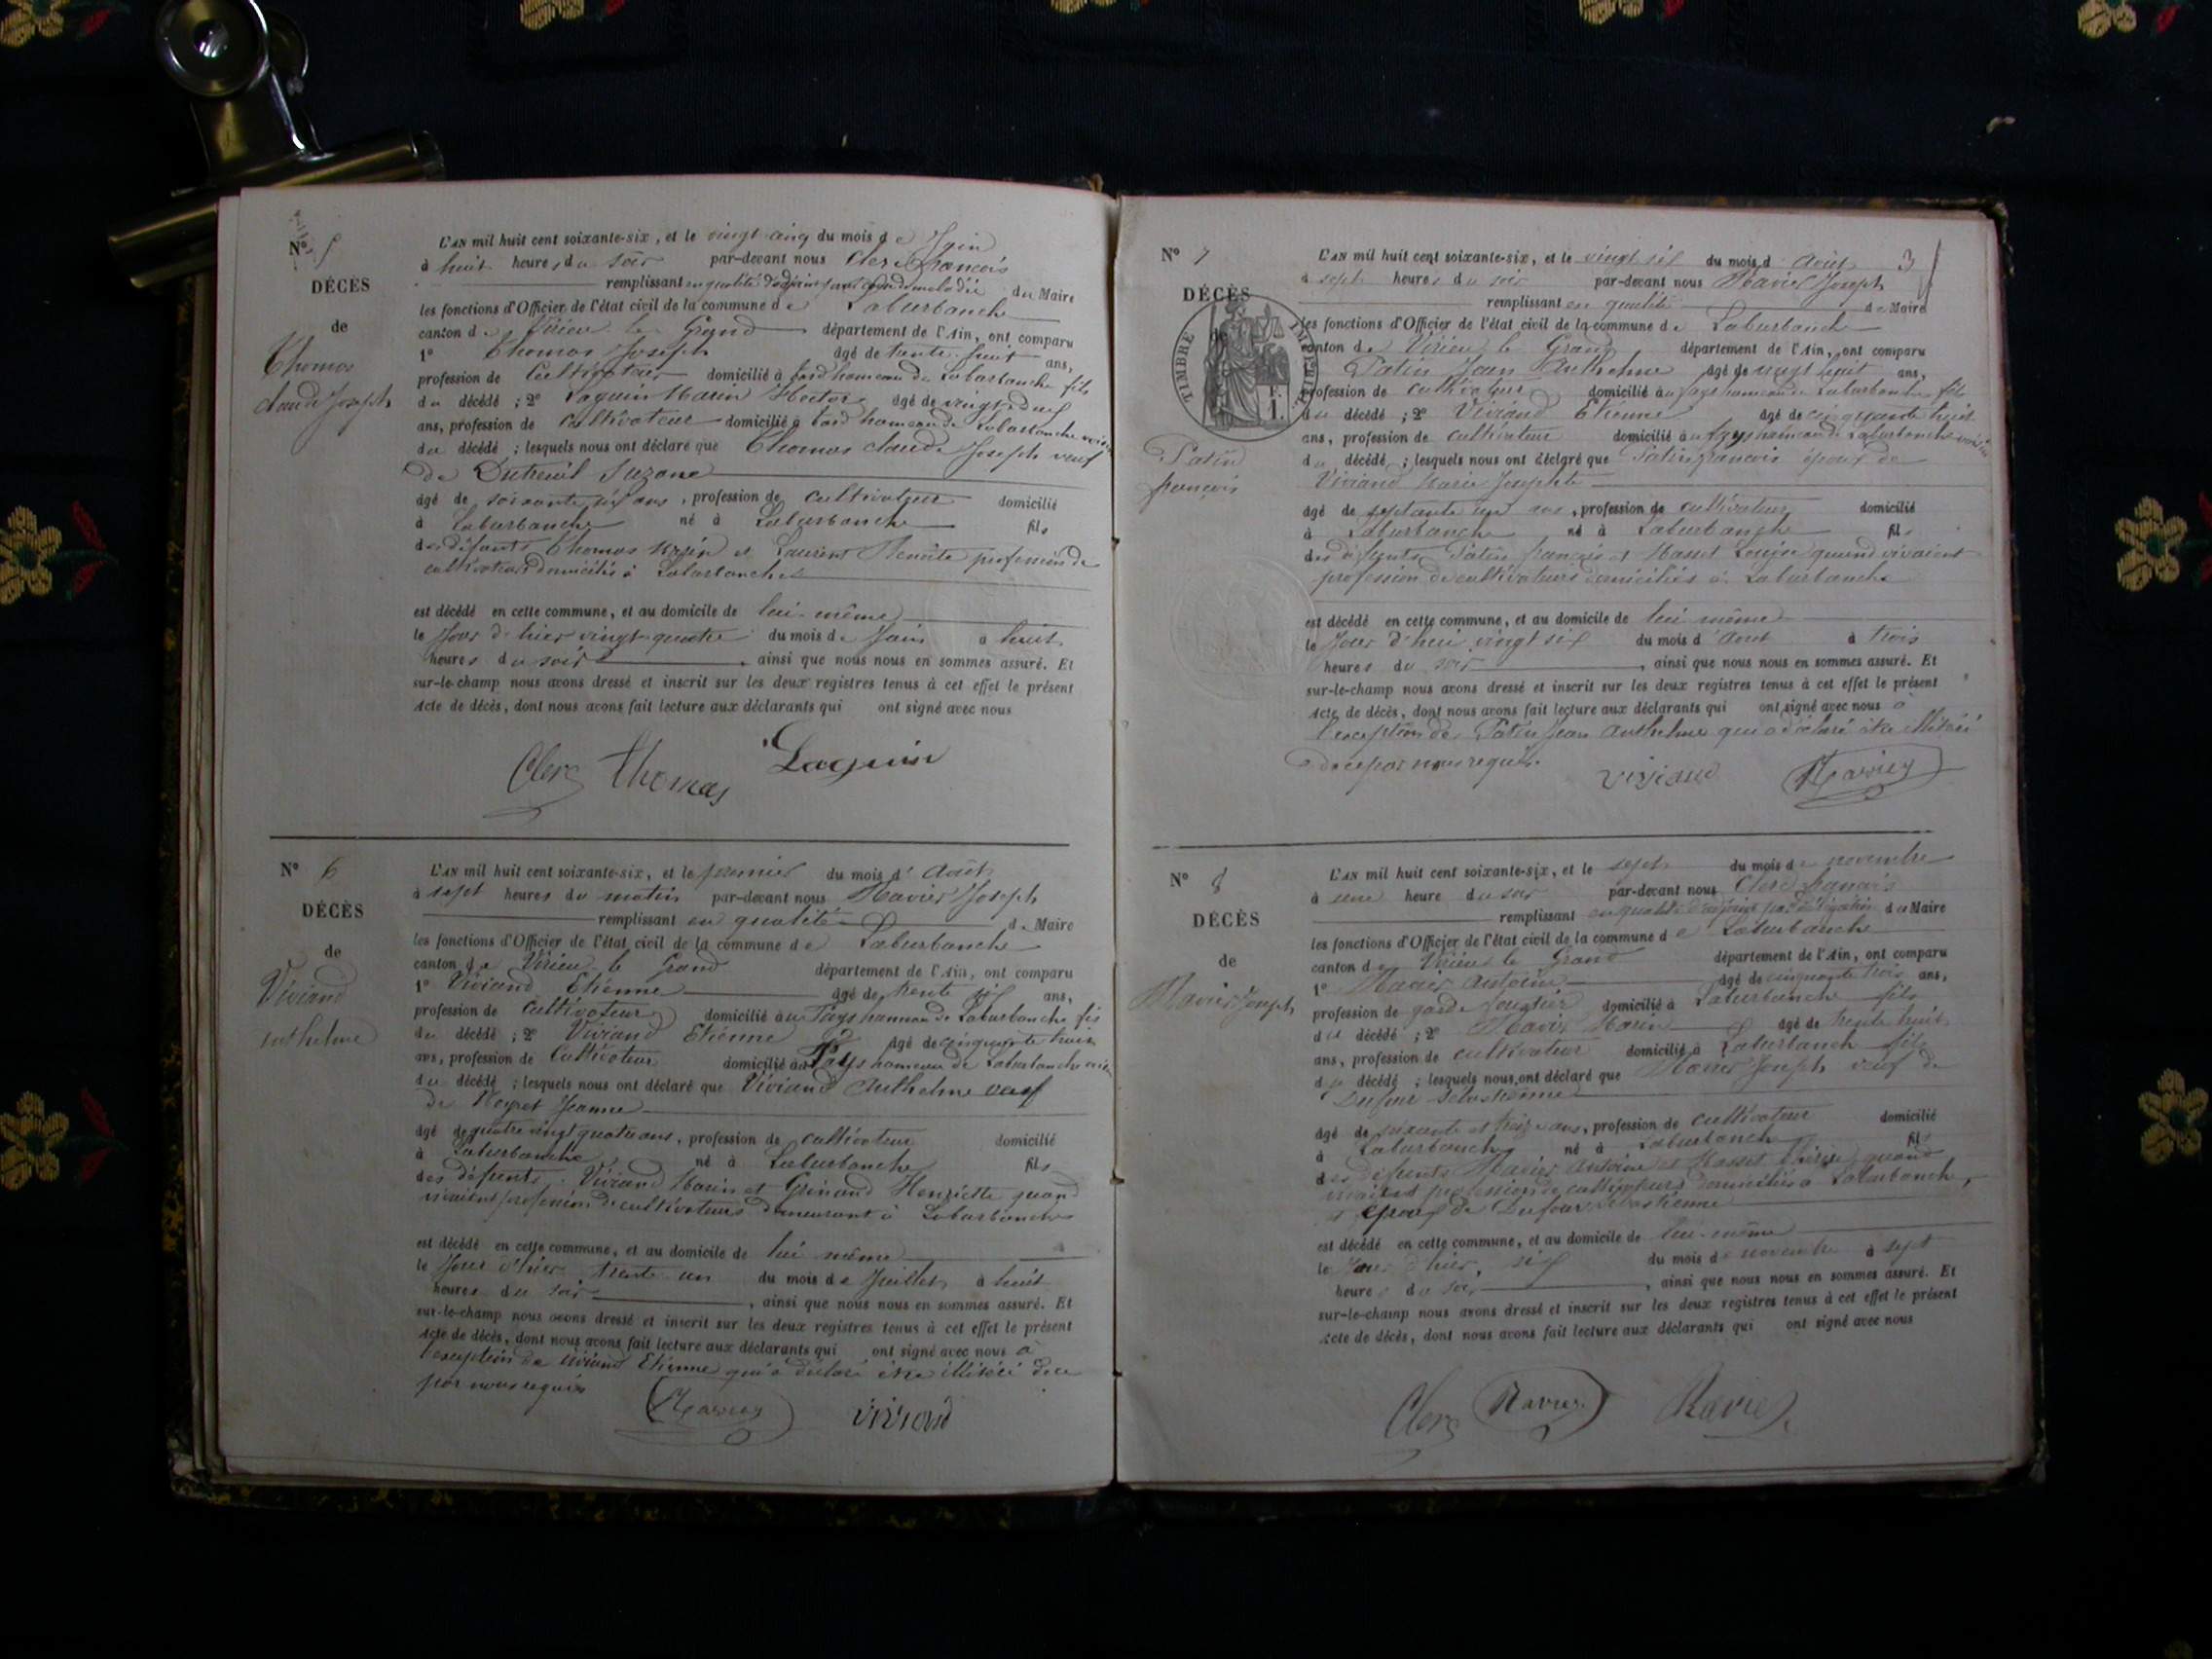 N° 5
DÉCÈS
de
Thomas
claude Joseph
L'AN mil huit cent soixante-six, et le vingt cinq du mois de Juin
à huit heures du soir par-devant nous Clerc francois
remplissant en qualité d'adjoint du Maire
les fonctions d'Officier de l'état civil de la commune de Laburbanche
canton de Virieu le Grand département de l'Ain, ont comparu
1° Thomas Joseph âgé de trente huit ans,
profession de Cultivateur domicilié à hameau de Laburbanche fils
du décédé ; 2° Laguin Marin Hector âgé de vingt-deux
ans, profession de Cultivateur domicilié à hameau de Laburbanche voisin
du décédé ; lesquels nous ont déclaré que Thomas claude Joseph veuf
de Dutreuil Suzane
âgé de soixante six ans, profession de cultivateur domicilié
à Laburbanche né à Laburbanche fils
des défunts Thomas et Laurent Benoite profession de
cultivateurs domiciliés à Laburbanche
est décédé en cette commune, et au domicile de lui-même
le Jour d'hier vingt-quatre du mois de Juin à huit
heures du soir, ainsi que nous nous en sommes assuré. Et
sur-le-champ nous avons dressé et inscrit sur les deux registres tenus à cet effet le présent
Acte de décès, dont nous avons fait lecture aux déclarants qui ont signé avec nous
Clerc Thomas Laguin
N° 6
DÉCÈS
de
Viviand
anthelme
L'AN mil huit cent soixante-six, et le premier du mois d'Août
à sept heures du matin par-devant nous Ravier Joseph
remplissant en qualité de Maire
les fonctions d'Officier de l'état civil de la commune de Laburbanche
canton de Virieu-le Grand département de l'Ain, ont comparu
1° Viviand Etienne âgé de trente six ans,
profession de Cultivateur domicilié au Fays hameau de Laburbanche fils
du décédé ; 2° Viviand Etienne âgé de cinquante huit
ans, profession de Cultivateur domicilié au Fays hameau de Laburbanche voisin
du décédé ; lesquels nous ont déclaré que Viviand Anthelme veuf
de Jeanne
âgé de quatre vingt quatre ans, profession de cultivateur domicilié
à Laburbanche né à Laburbanche fils
des défunts Viviand Marin et Grinand Henriette quand
vivaient profession de cultivateurs demeurant à Laburbanche
est décédé en cette commune, et au domicile de lui même
le Jour d'hier trente un du mois de Juillet à huit
heures du soir, ainsi que nous nous en sommes assuré. Et
sur-le-champ nous avons dressé et inscrit sur les deux registres tenus à cet effet le présent
Acte de décès, dont nous avons fait lecture aux déclarants qui ont signé avec nous à
l'exception de Viviand Etienne qui a déclaré être illitéré de ce
par nous requis
Ravier Viviand
3
N° 7
DÉCÈS
de
TIMBRE IMPÉRIAL
F. 1.
Patin
françois
L'AN mil huit cent soixante-six, et le vingt six du mois d'Août
à sept heures du soir par-devant nous Ravier Joseph
remplissant en qualité de Maire
les fonctions d'Officier de l'état civil de la commune de Laburbanche
canton de Virieu le Grand département de l'Ain, ont comparu
Patin Jean Anthelme âgé de vingt huit ans,
profession de cultivateur domicilié au fays hameau de Laburbanche fils
du décédé ; 2° Viviand Etienne âgé de cinquante huit
ans, profession de cultivateur domicilié au fays hameau de Laburbanche voisin
du décédé ; lesquels nous ont déclaré que Patin francois époux de
Viviand Marie Josephte
âgé de septante un ans, profession de cultivateur domicilié
à Laburbanche né à Laburbanche fils
des défunts Patin françois et Masset Louise quand vivaient
profession de cultivateurs domiciliés à Laburbanche
est décédé en cette commune, et au domicile de lui même
le Jour d'hui vingt six du mois d'Aout à trois
heures du soir, ainsi que nous nous en sommes assuré. Et
sur-le-champ nous avons dressé et inscrit sur les deux registres tenus à cet effet le présent
Acte de décès, dont nous avons fait lecture aux déclarants qui ont signé avec nous à
l'exception de Patin Jean Anthelme qui a déclaré être illitéré
de ce par nous requis.
Viviand Ravier
N° 8
DÉCÈS
de
Ravier Joseph
L'AN mil huit cent soixante-six, et le sept du mois de novembre
à une heure du soir par-devant nous Clerc français
remplissant en qualité d'adjoint par délégation du Maire
les fonctions d'Officier de l'état civil de la commune de Laburbanche
canton de Virieu le Grand département de l'Ain, ont comparu
1° Ravier Antoine âgé de cinquante trois ans,
profession de garde domicilié à Laburbanche fils
du décédé ; 2° Ravier Marin âgé de trente huit
ans, profession de cultivateur domicilié à Laburbanch fils
du décédé ; lesquels nous ont déclaré que Ravier Joseph veuf de
Dufour sebastienne
âgé de soixante et treize ans, profession de cultivateur domicilié
à Laburbanche né à Laburbanch fils
des défunts Ravier Antoine et Masset quand
vivaient profession de cultivateurs domiciliés à Laburbanch,
et époux de Dufour sebastienne
est décédé en cette commune, et au domicile de lui-même
le Jour d'hier, six du mois de novembre à sept
heures du soir, ainsi que nous nous en sommes assuré. Et
sur-le-champ nous avons dressé et inscrit sur les deux registres tenus à cet effet le présent
Acte de décès, dont nous avons fait lecture aux déclarants qui ont signé avec nous
Clerc Ravier Ravier